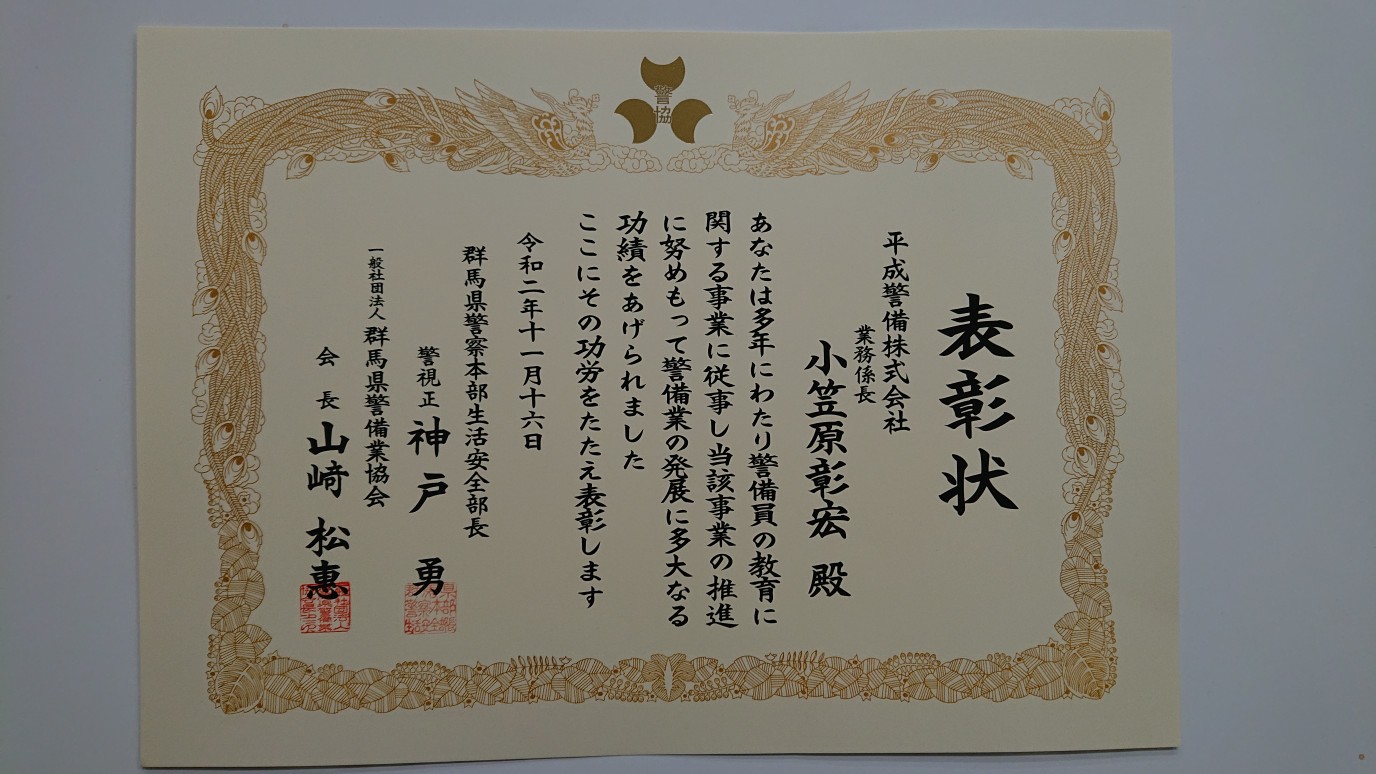 警
協
表彰状
平成警備株式会社
業務係長
小笠原彰宏 殿
あなたは多年にわたり警備員の教育に
関する事業に従事し当該事業の推進
に努めもって警備業の発展に多大なる
功績をあげられました
ここにその功労をたたえ表彰します
令和二年十一月十六日
群馬県警察本部生活安全部長
警視正 神戸 勇
一般社団法人 群馬県警備業協会
会長 山﨑 松惠